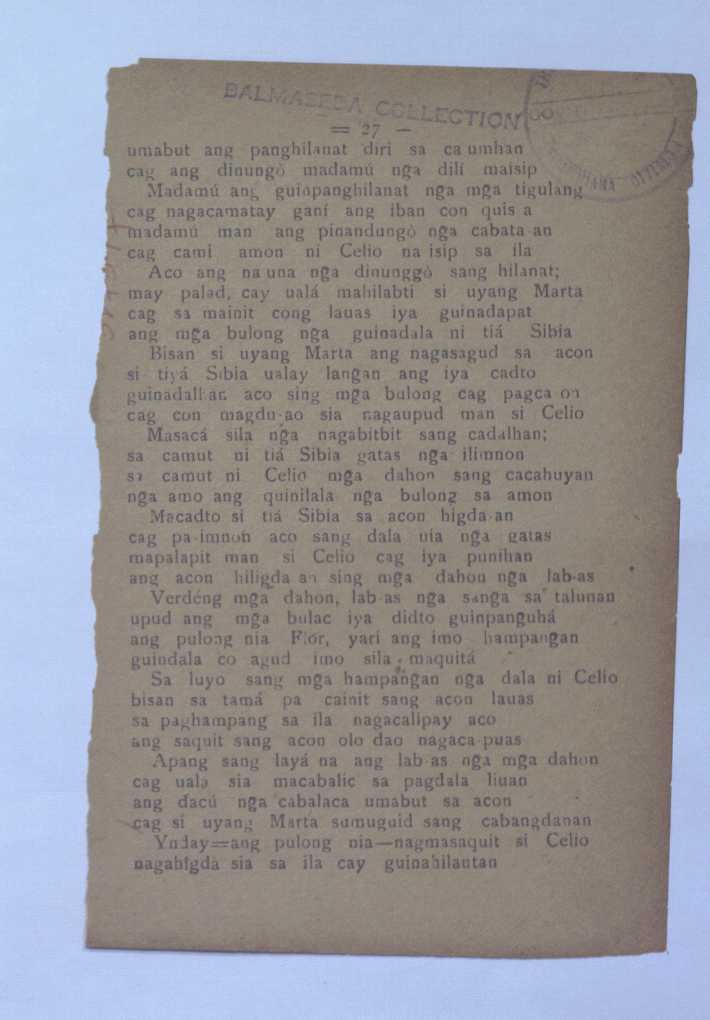 BALMASEDA COLLECTION
= 27 —
umabut ang panghilanat diri sa ca umhan
cag ang dinungò madamú nga dilí maisip
Madamú ang guinpanghilanat nga mga tigulang
cag nagacamatay ganí ang iban con quis a
madamú man ang pinandungò nga cabata-an
cag cami amon ni Celio na isip sa ila
Aco ang na una nga dinunggò sang hilanat;
may palad, cay ualá mahilabti si uyang Marta
cag sa mainit cong lauas iya guinadapat
ang mga bulong nga guinadala ni tiá Sibia
Bisan si uyang Marta ang nagasagud sa acon
si tiyá Sibia ualay langan ang iya cadto
guinadalhan aco sing mga bulong cag pagca on
cag con magdu-ao sia nagaupud man si Celio
Masacá sila nga nagabitbit sang cadalhan;
sa camut ni tiá Sibia gatas nga ilimnon
sa camut ni Celio mga dahon sang cacahuyan
nga amo ang quinilala nga bulong sa amon
Macadto si tiá Sibia sa acon higda-an
cag pa-imnon aco sang dala nia nga gatas
mapalapit man si Celio cag iya punihan
ang acon hiligda an sing mga dahon nga lab-as
Verdéng mga dahon, lab-as nga sanga sa talunan
upud ang mga bulac iya didto guinpanguhá
ang pulong nia Flor, yari ang imo hampangan
guindala co agud imo sila maquitá
Sa luyo sang mga hampangan nga dala ni Celio
bisan sa tamá pa cainit sang acon lauas
sa paghampang sa ila nagacalipay aco
ang saquit sang acon olo dao nagaca-puas
Apang sang layá na ang lab-as nga mga dahon
cag uala sia macabalic sa pagdala liuan
ang dacú nga cabalaca umabut sa acon
cag si uyang Marta sumuguid sang cabangdanan
Ynday=ang pulong nia—nagmasaquit si Celio
nagahigda sia sa ila cay guinahilantan